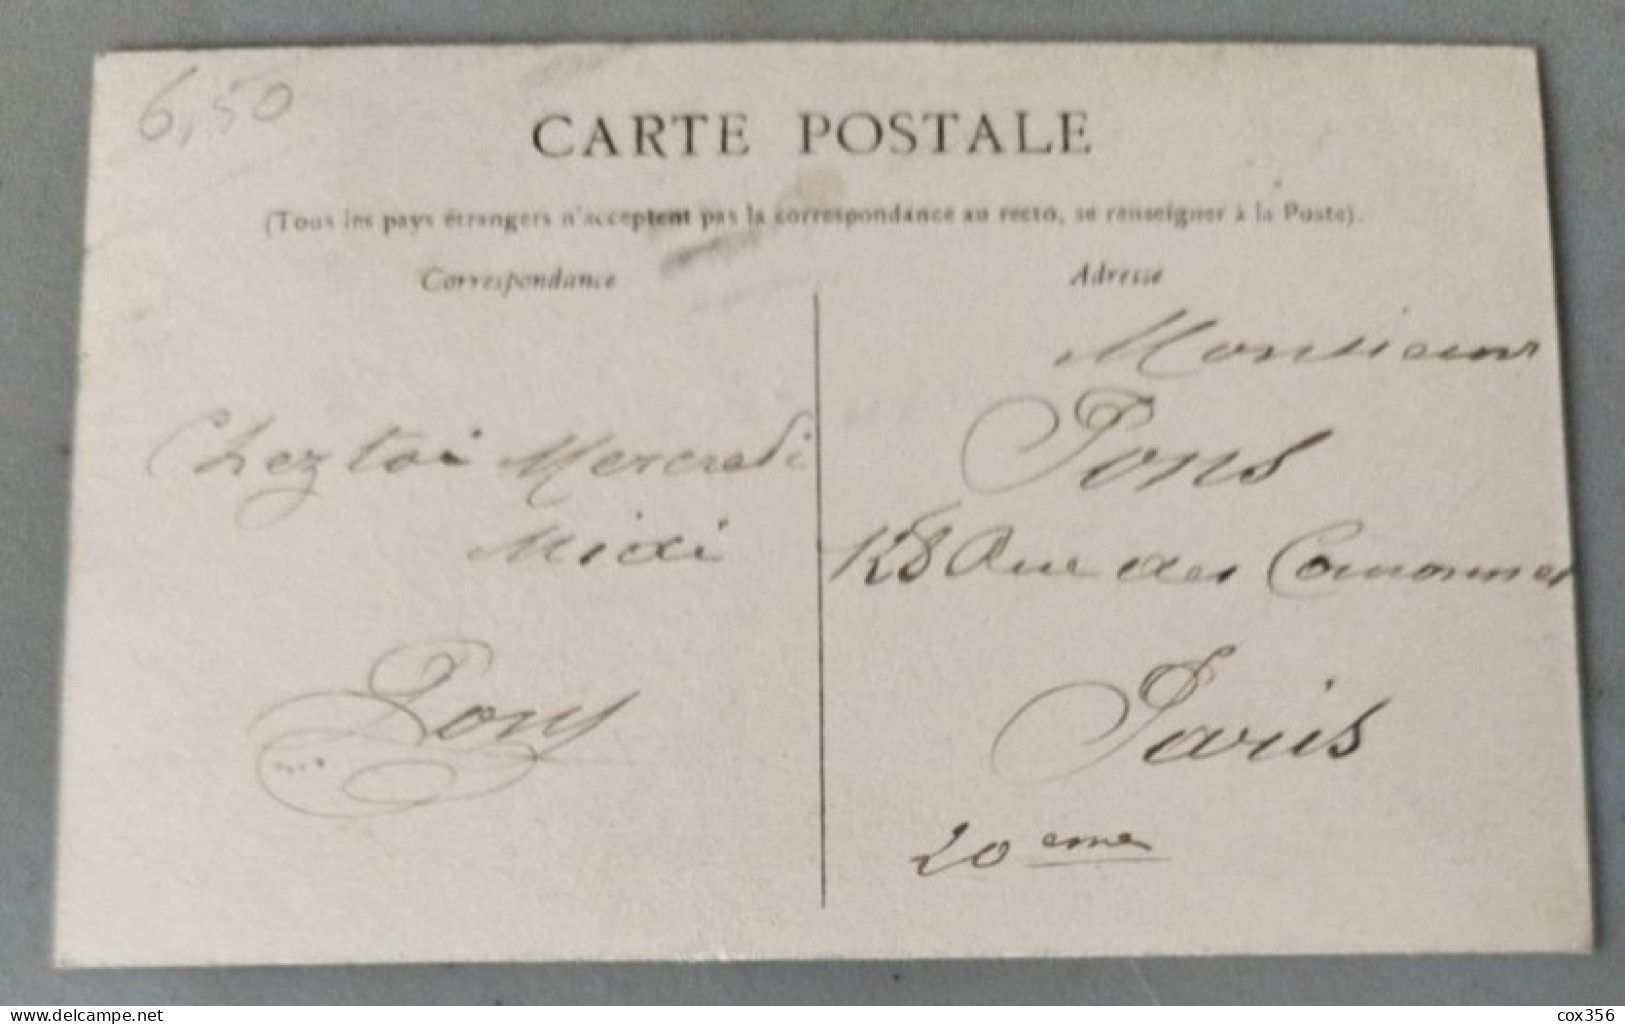 6,50
CARTE POSTALE
(Tous les pays étrangers n'acceptent pas la correspondance au recto, se renseigner à la Poste).
Correspondance
Chez toi Mercredi
Midi
Pons
Adresse
Monsieur
Pons
128 Rue des Couronnes
Paris
20 eme
Delcampe.net
cox356